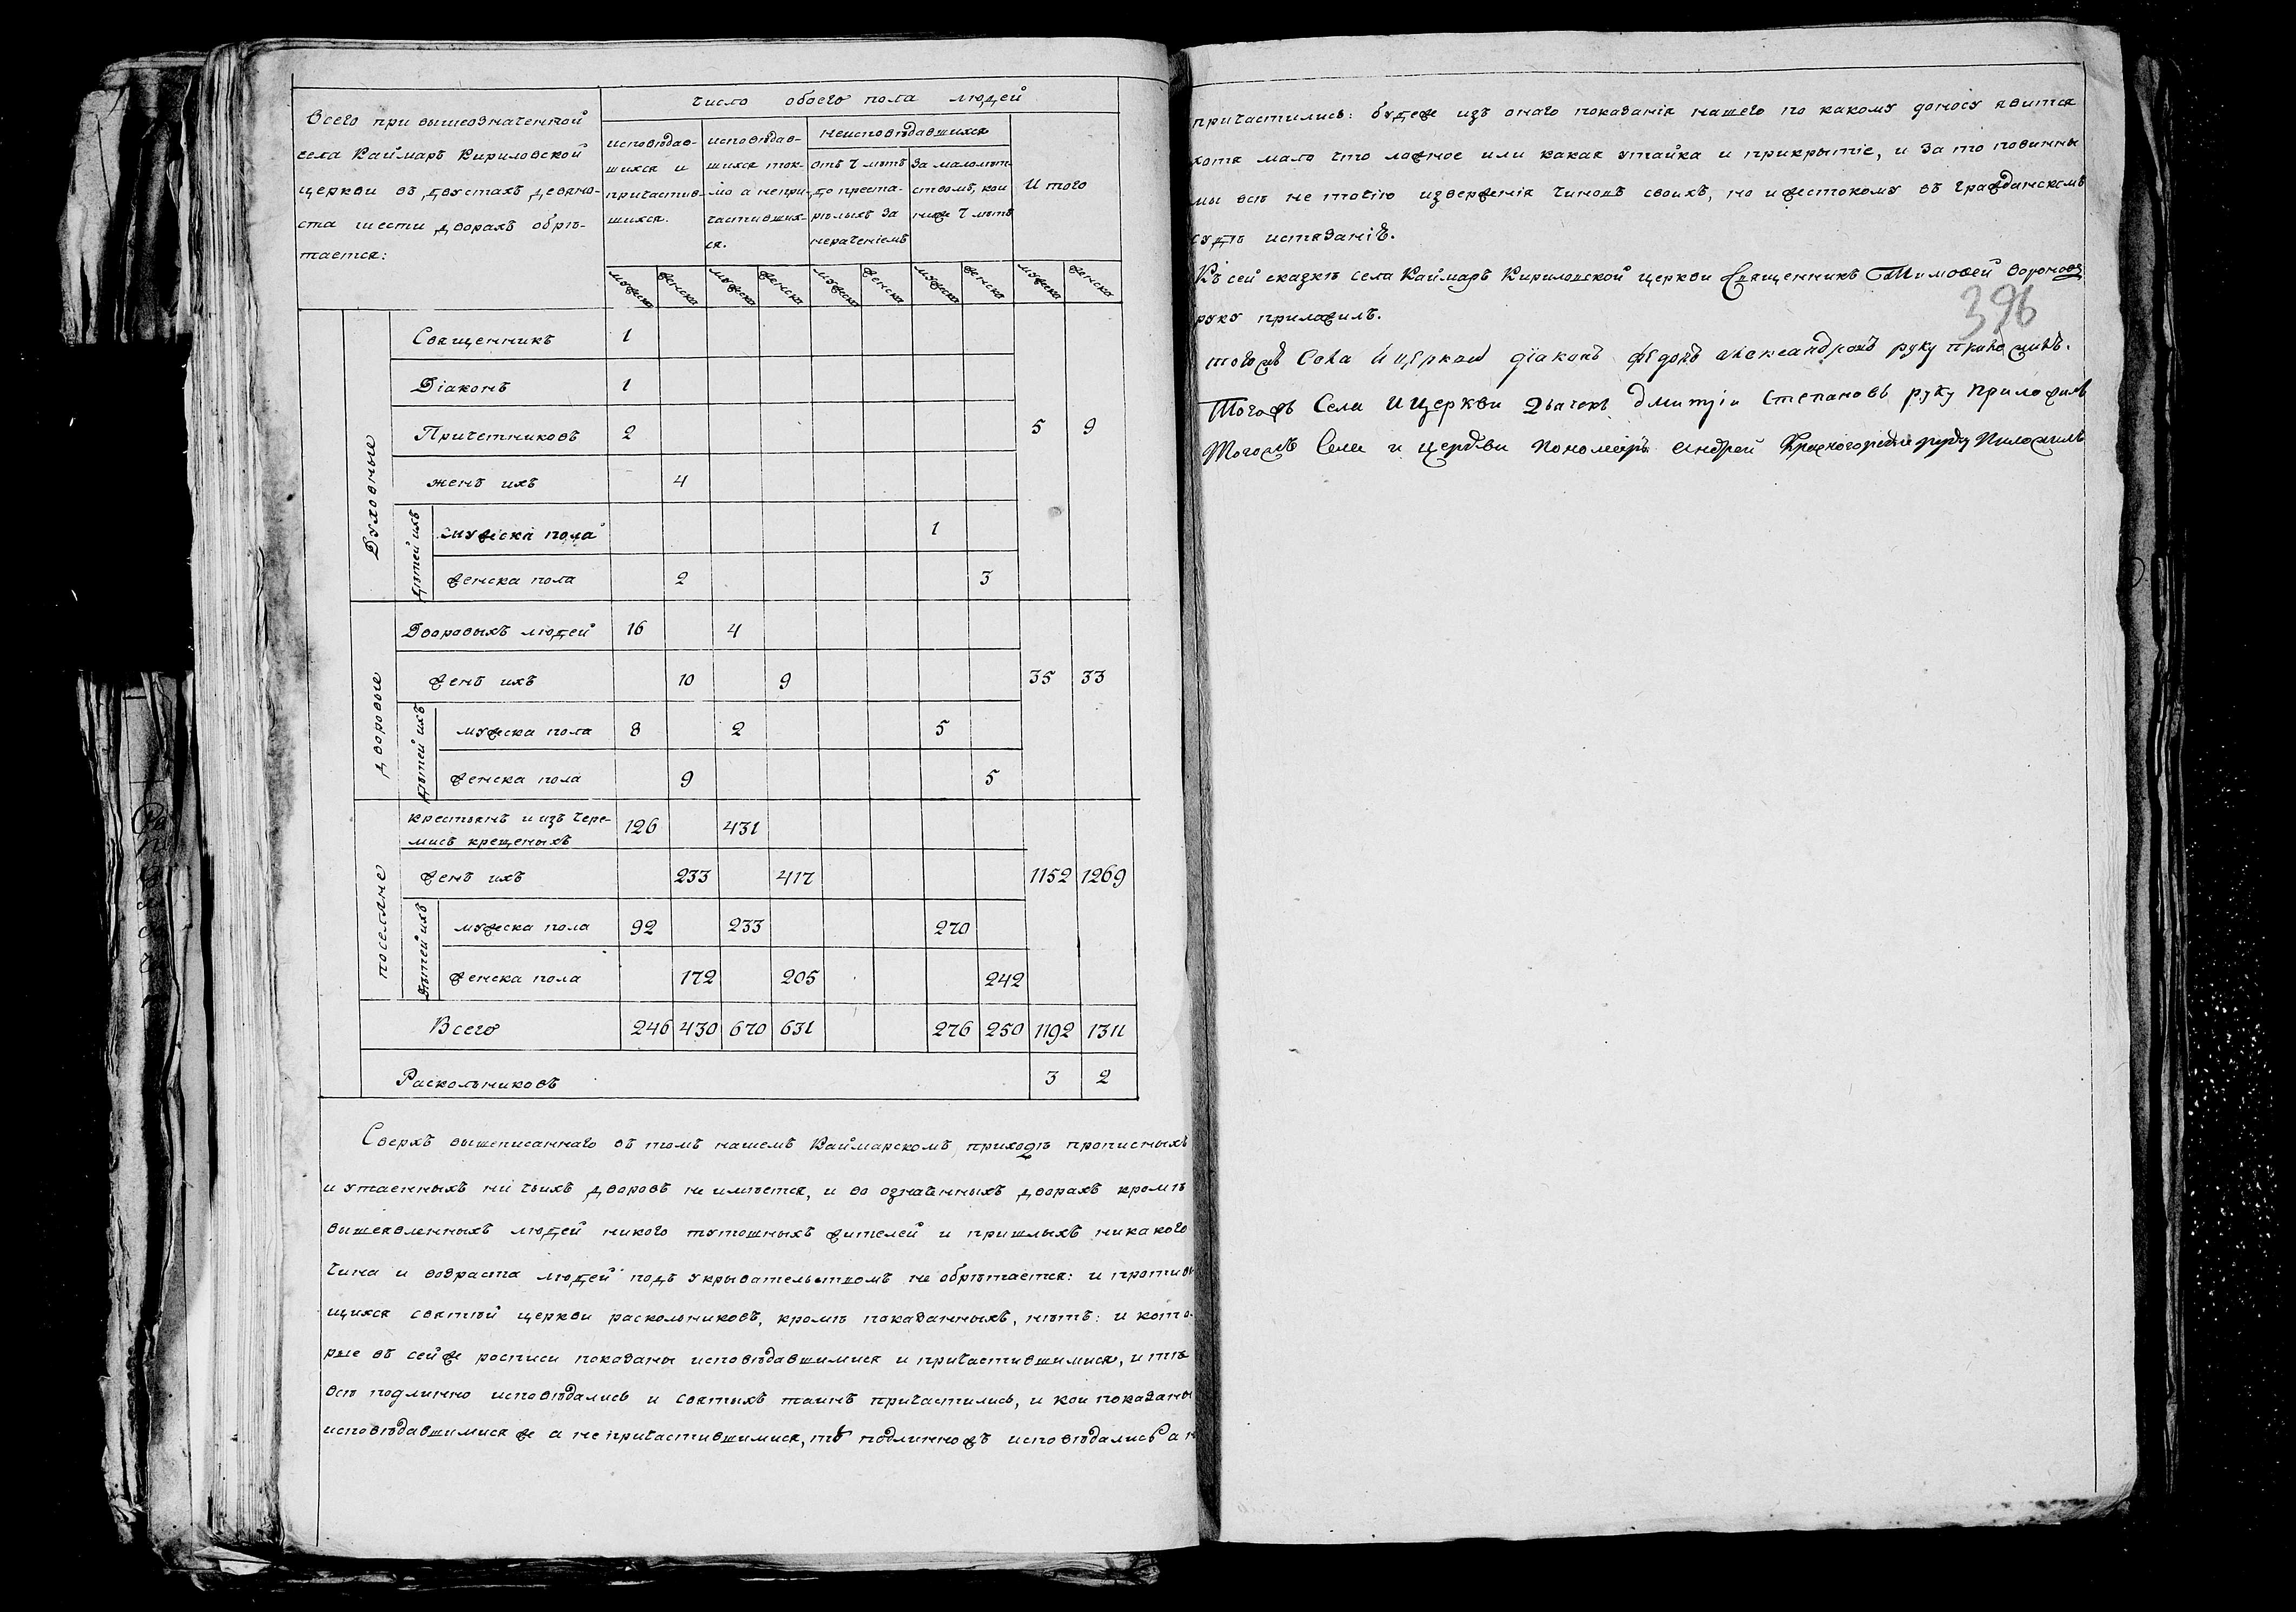 Всего при вышеозначенной
села Каймаръ Кириловской
церкви въ двустахъ девяно-
ста шести дворахъ обрѣ-
тается:
Число обоего пола людей
исповѣдав-
шихся и
причастив-
шихся.
исповѣдав-
шихся ток-
мо а непри-
частивших-
ся.
неисповѣдавшихся
отъ 7 лѣтъ
до преста-
рѣлыхъ за
нераченіемъ
За малолѣт-
ствомъ, кои
ниже 7 лѣтъ
И того
мужска женска мужска женска мужска женска мужска женска мужска женска
Духовные
Священникъ 1
Діаконъ 1
Причетниковъ 2 5 9
женъ ихъ 4
дѣтей ихъ
мужска пола 1
женска пола 2 3
дворовые
Дворовыхъ людей 16 4
женъ ихъ 10 9 35 33
дѣтей ихъ
мужска пола 8 2 5
женска пола 9 5
поселяне
крестьянъ и изъ чере-
мисъ крещеныхъ 126 431
женъ ихъ 233 417 1152 1269
дѣтей ихъ
мужска пола 92 233 270
женска пола 172 205 242
Всего 246 430 670 631 276 250 1192 1311
Раскольниковъ 3 2
Сверхъ вышеписаннаго въ томъ нашемъ Каймарскомъ приходѣ прописныхъ
и утаенныхъ ни чьихъ дворовъ не имѣется, и во означенныхъ дворахъ кромѣ
вышеявленныхъ людей никого тутошныхъ жителей и пришлыхъ никакого
чина и возраста людей подъ укрывательствомъ не обрѣтается: и против
щихся святѣй церкви раскольниковъ, кромѣ показанныхъ, нѣтъ: и кото-
рые въ сей же росписи показаны исповѣдавшимися и причастившимися, и тѣ
всѣ подлинно исповѣдались и святыхъ таинъ причастились, и кои показаны
исповѣдавшимися же а непричастившимися, тѣ подлинножъ исповѣдались а н
причастились: будеже изъ онаго показанія нашего по какому доносу явится
хотя мало что ложное или какая утайка и прикрытіе, и за то повинны
мы всѣ не точію изверженія чиновъ своихъ, но и жестокому въ гражданскомъ
судѣ истязаніѣ.
Къ сей сказкѣ села Каймаръ Кириловской церкви Священникъ Тимофей Вороновъ
руку приложилъ.
396
тогожъ Села и церкви діаконъ Федоръ Александровъ руку приложилъ.
Тогожъ Села и Церкви Дьячекъ Дмитрій Степановъ руку приложилъ
Тогожъ Села и церкви Пономарь Андрей руку